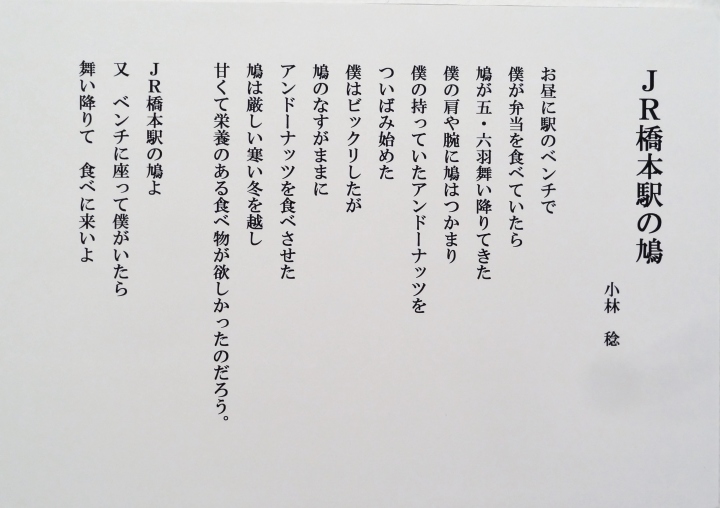 JR橋本駅の鳩
小林 稔
お昼に駅のベンチで
僕が弁当を食べていたら
鳩が五・六羽舞い降りてきた
僕の肩や腕に鳩はつかまり
僕の持っていたアンドーナッツを
ついばみ始めた
僕はビックリしたが
鳩のなすがままに
アンドーナッツを食べさせた
鳩は厳しい寒い冬を越し
甘くて栄養のある食べ物が欲しかったのだろう。
JR橋本駅の鳩よ
又 ベンチに座って僕がいたら
舞い降りて 食べに来いよ